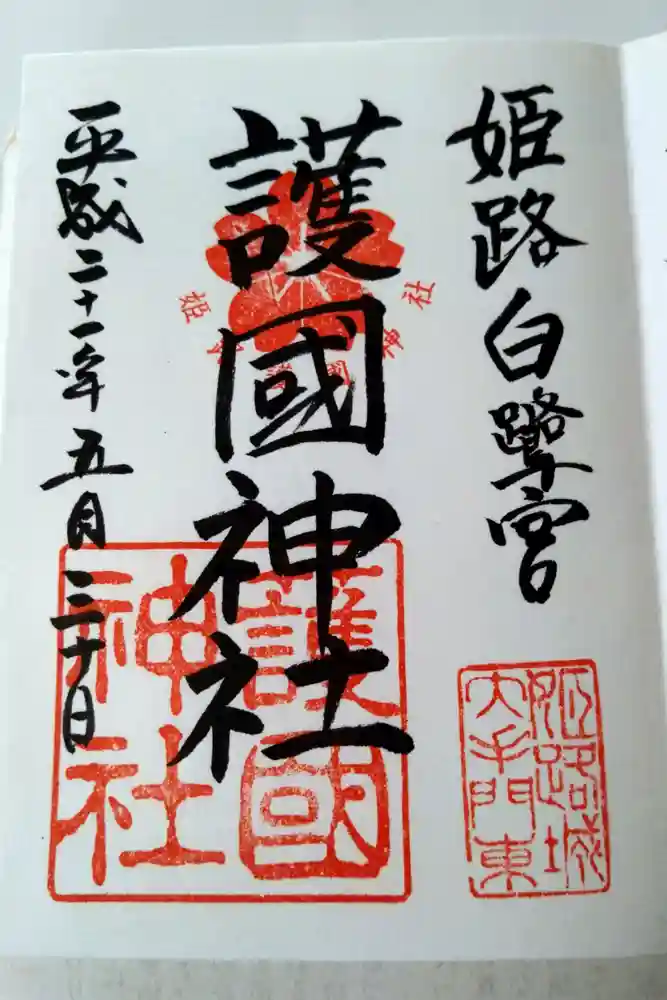 姫路白鷺宮
姫路城
大手門東
護國神社
姫路護國神社
護國
神社
平成二十一年五月三十日